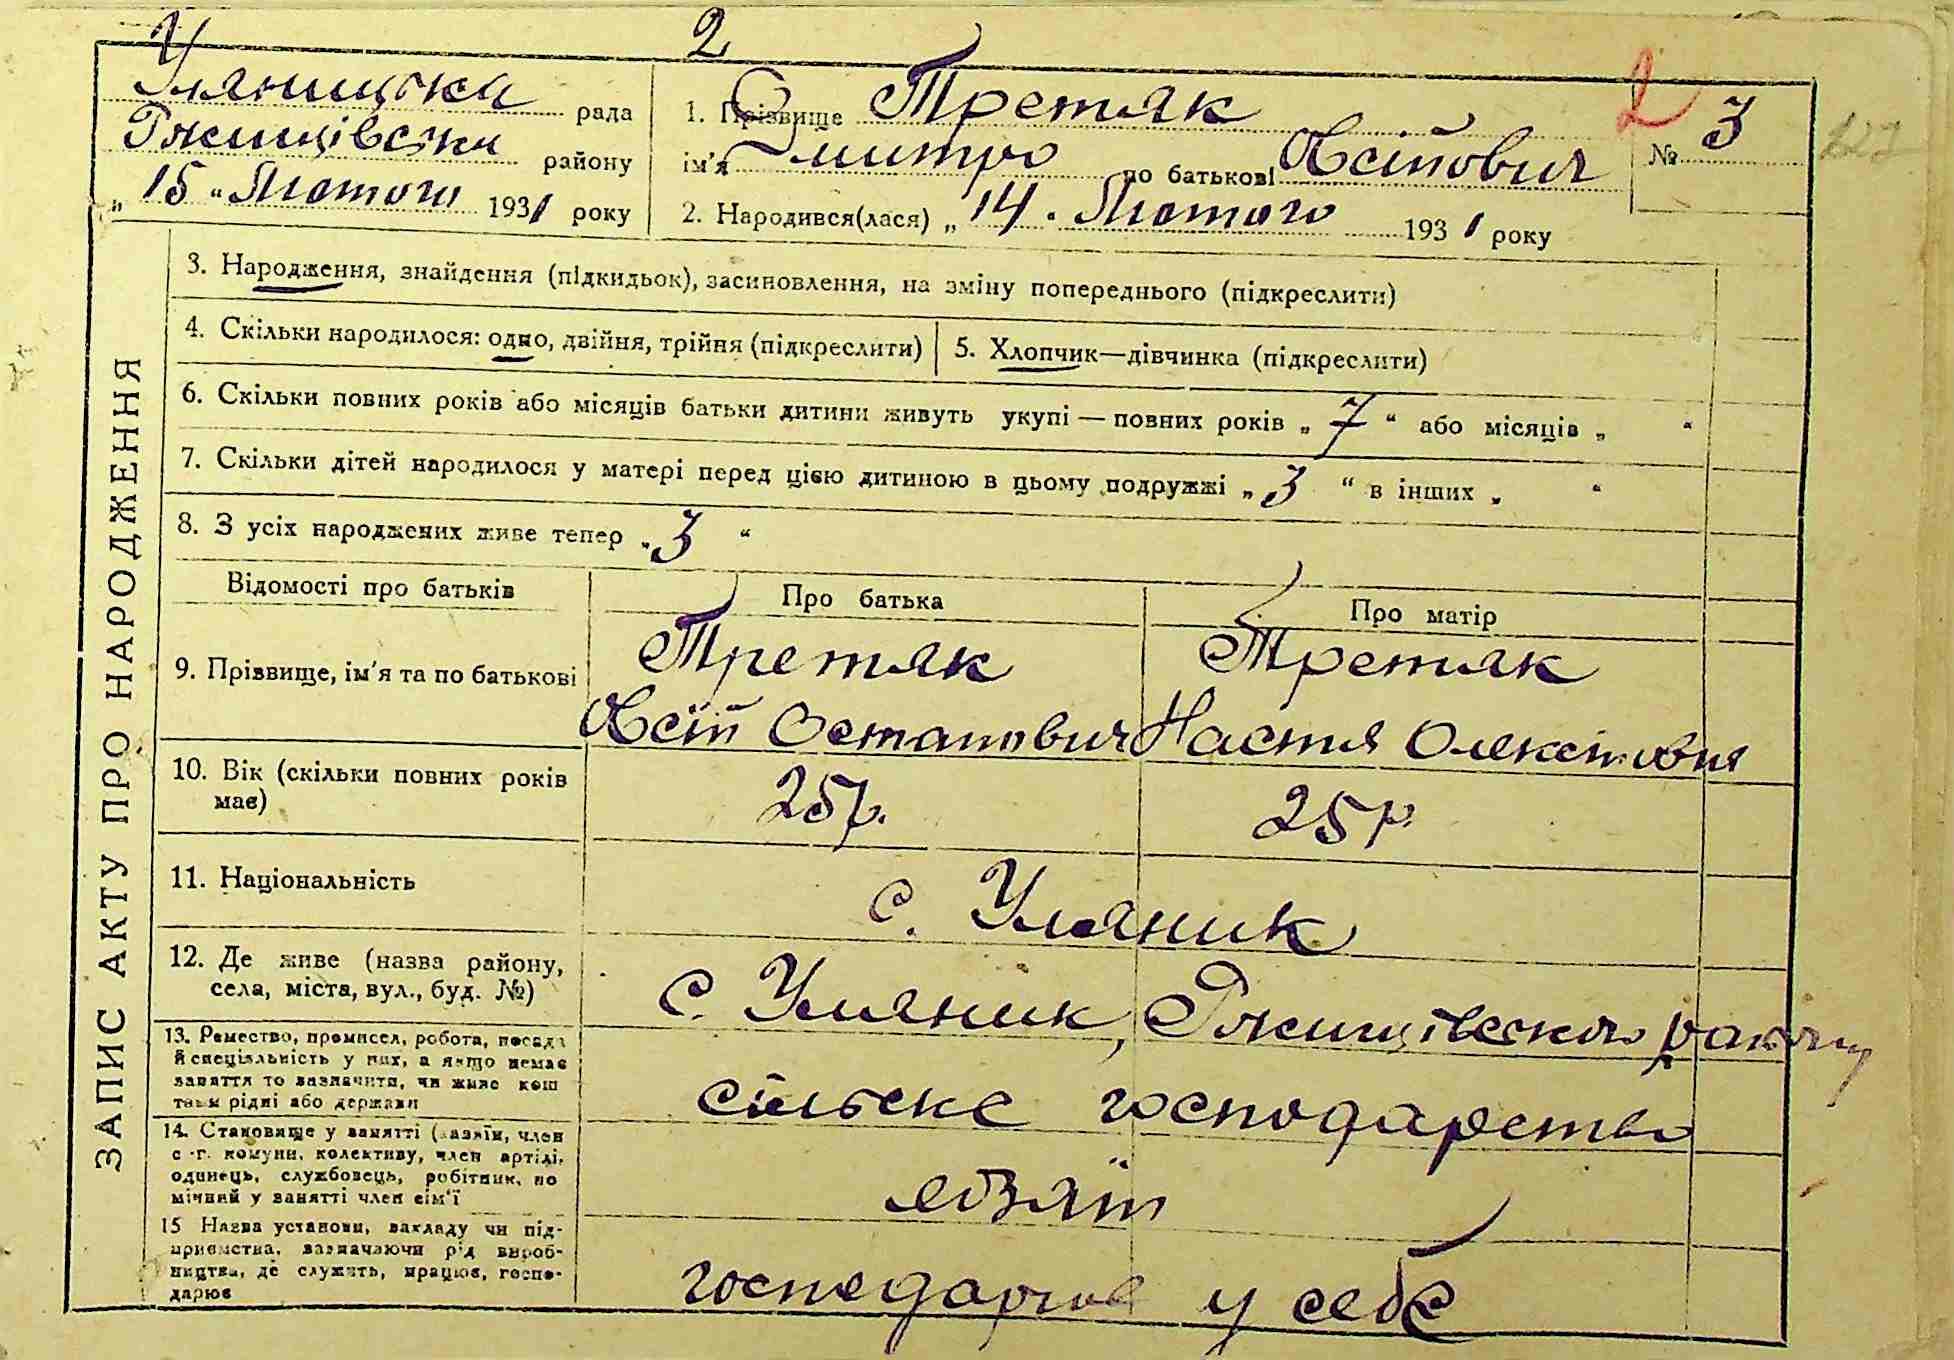 2
Уляницька рада
Ржищівськ району
„ 15 “ Лютого 1931 року
1. Прізвище Третяк
ім'я Дмитро по батькові Овсійович
2. Народився(лася) „ 14 . Лютого 1931 року
2
№ 3
227
ЗАПИС АКТУ ПРО НАРОДЖЕННЯ
3. Народження, знайдення (підкидьок), засиновлення, на зміну попереднього (підкреслити)
4. Скільки народилося: одно, двійня, трійня (підкреслити)
5. Хлопчик—дівчинка (підкреслити)
6. Скільки повних років або місяців батьки дитини живуть укупі — повних років „ 7 “ або місяців „ “
7. Скільки дітей народилося у матері перед цією дитиною в цьому подружжі „ 3 “ в інших „ “
8. З усіх народжених живе тепер „ 3 “
Відомості про батьків
Про батька
Про матір
9. Прізвище, ім'я та по батькові
Третяк
Овсій Остапович
Третяк
Настя
10. Вік (скільки повних років
має)
25 р.
25 р.
11. Національність
с. Уляник
12. Де живе (назва району,
села, міста, вул., буд. №)
с. Уляник, Ржищівського району
13. Ремество, промисел, робота, посада
й спеціяльність у них, а якщо немає
заняття то зазначити, чи живе кош
том рідні або держави
сільське господарство
14. Становище у занятті (хазяїн, член
с.-г. комуни, колективу, член артілі,
одинець, службовець, робітник, по
мічний у занятті член сім'ї
хазяїн
15 Назва установи, закладу чи під-
приємства, зазначаючи рід вироб-
ництва, де служить, працює, госпо-
дарює
господарює у себе